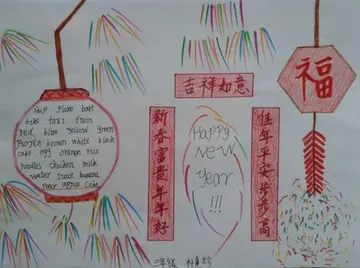 ship plane boat
bike taxi train
red blue yellow green
purple brown white black
cake egg orange rice
noodles chicken milk
water juice banana
pear apple cake
吉祥如意
新春富贵年年好
Happy
New
Year
!!!
佳年平安步步高
福
三年级